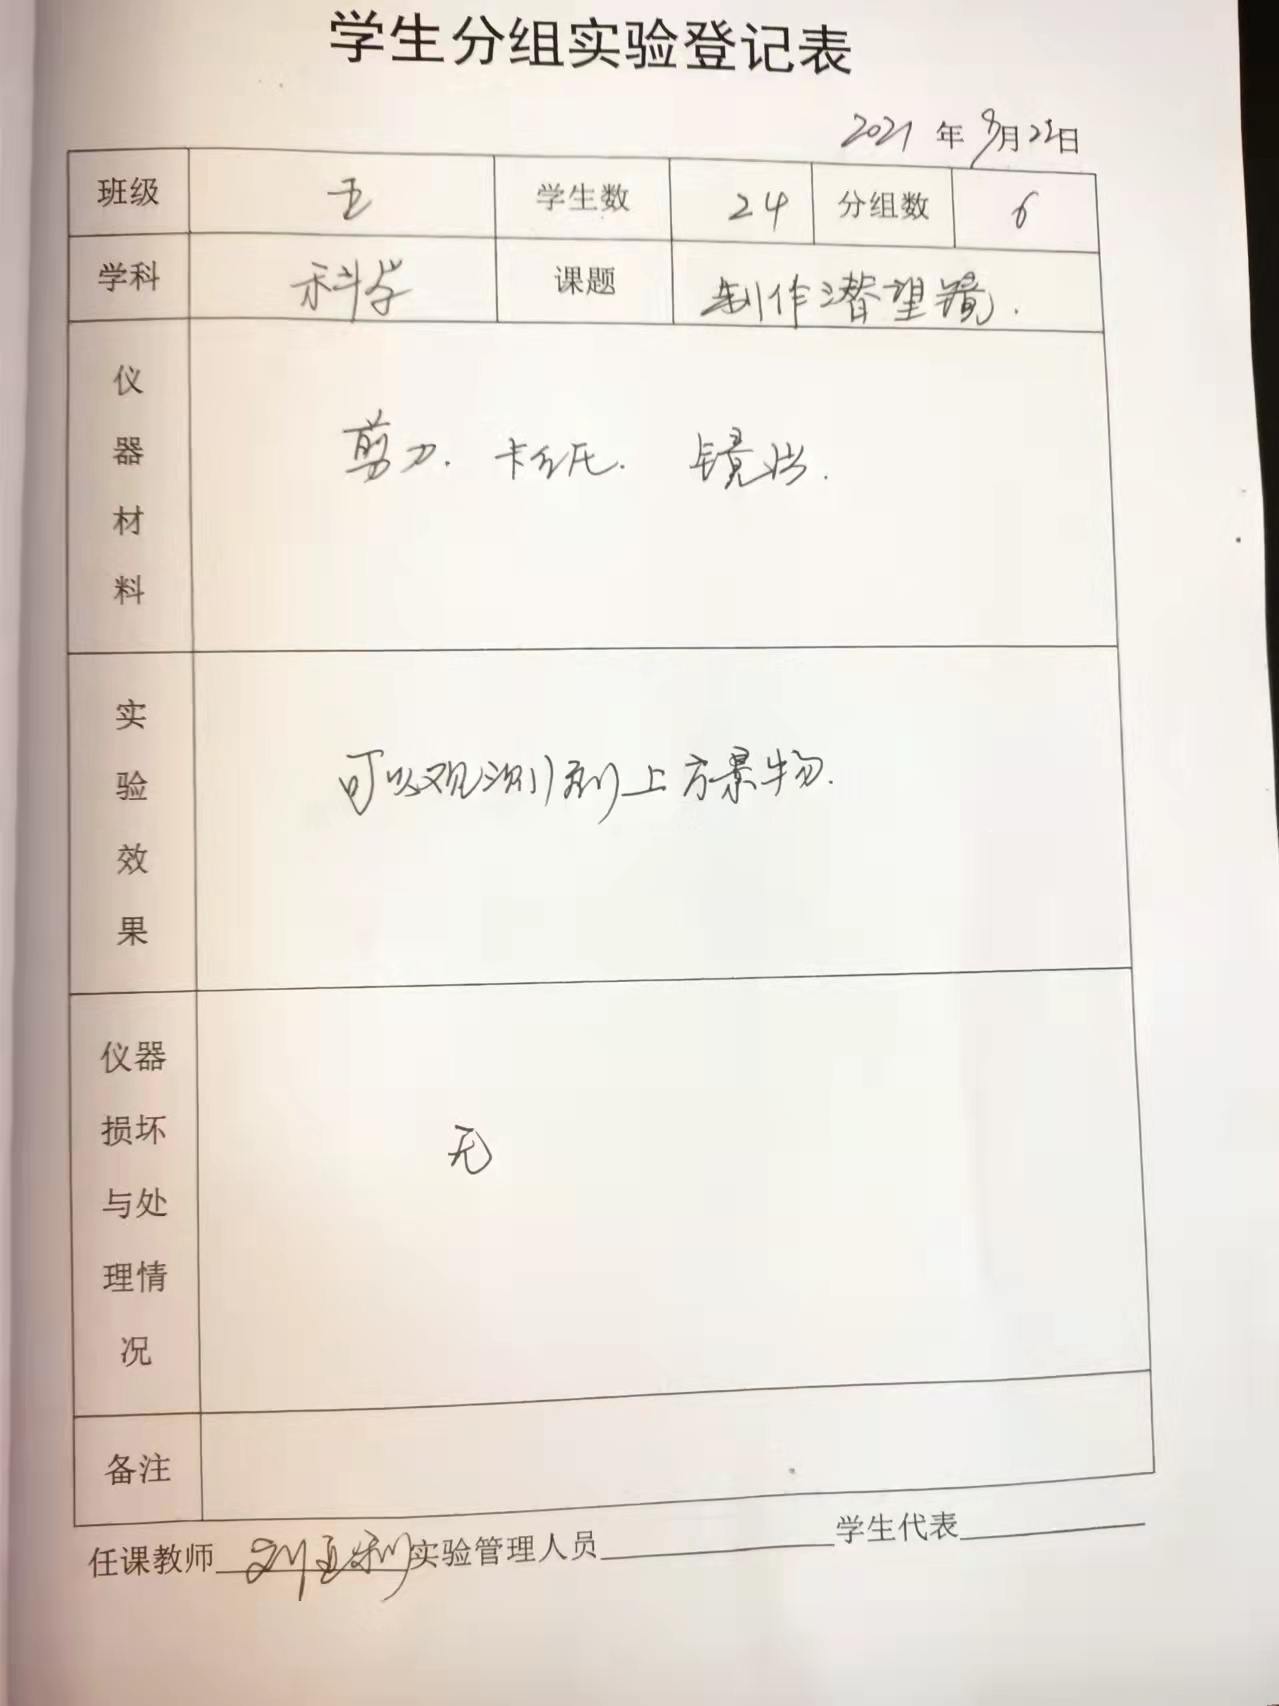 学生分组实验登记表
2021年9月22日
班级 五 学生数 24 分组数 6
学科 科学 课题 制作潜望镜.
仪器材料 剪刀. 卡纸. 镜片.
实验效果 可以观测到上方景物.
仪器损坏与处理情况 无
备注
任课教师 刘 实验管理人员 学生代表